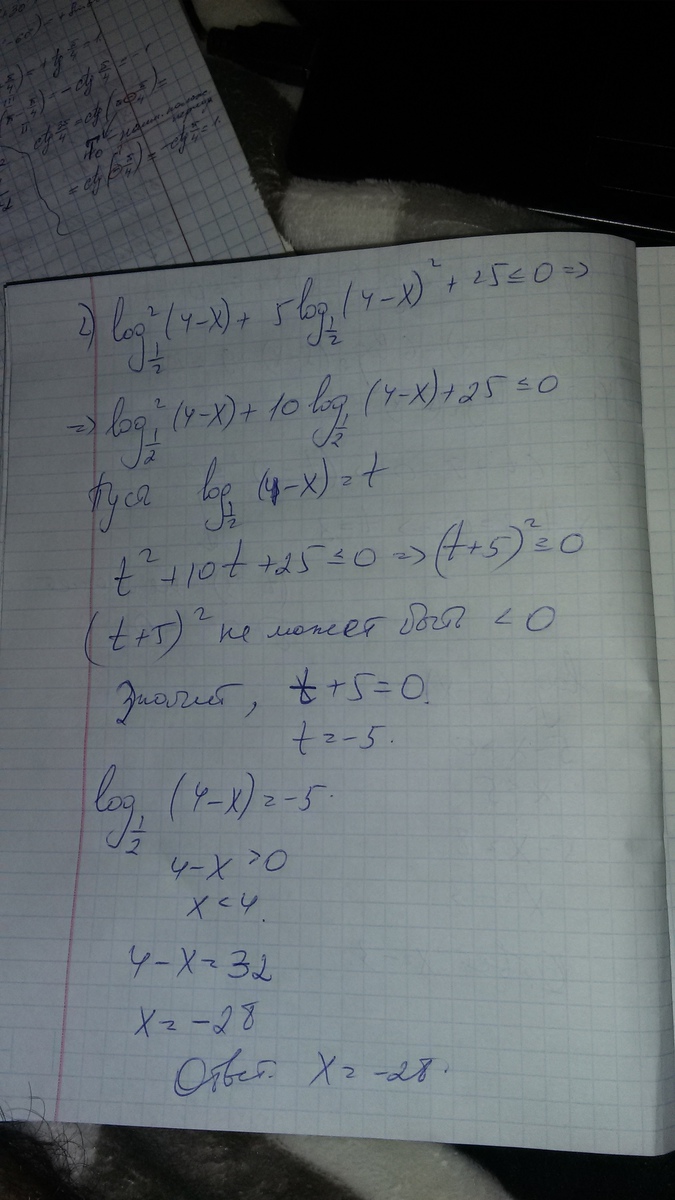 tg π/4 = 1
= -ctg π/4 = -1
= ctg
= -ctg π/4 = 1
2) log²_{1/2} (4-x) + 5 log_{1/2} (4-x)² + 25 ≤ 0 =>
=> log²_{1/2} (4-x) + 10 log_{1/2} (4-x) + 25 ≤ 0
Пусть log_{1/2} (4-x) = t
t² + 10t + 25 ≤ 0 => (t+5)² ≤ 0
(t+5)² не может быть < 0
Значит, t + 5 = 0.
t = -5.
log_{1/2} (4-x) = -5.
4-x > 0
x < 4.
4-x = 32
x = -28
Ответ. x = -28.